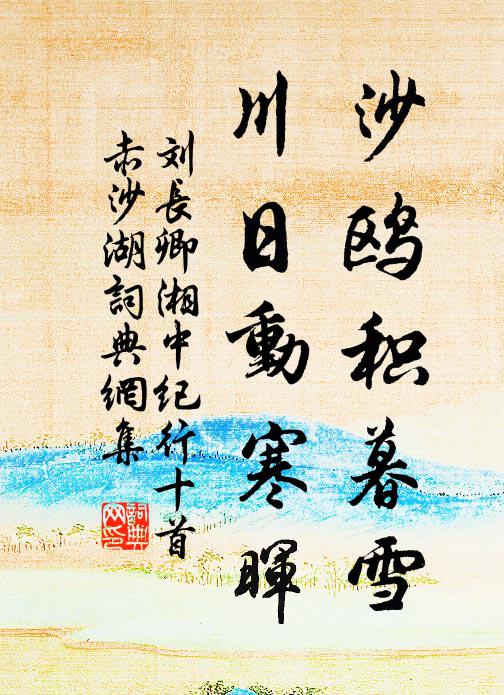 沙鸥积暮雪
川日動寒暉
刘長卿湘中纪行十首
赤沙湖詞典網集
詞典
网印